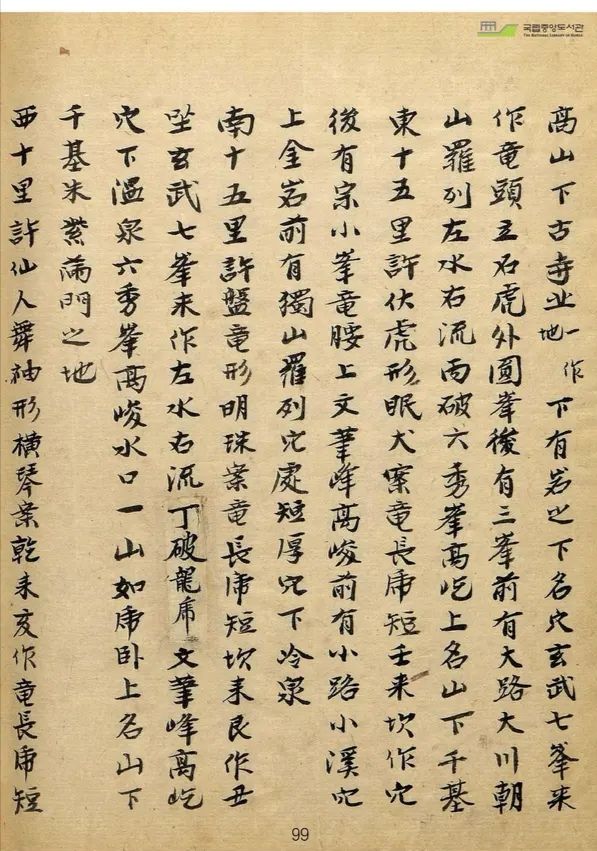 국립중앙도서관
THE NATIONAL LIBRARY OF KOREA
高山下古寺址一作地下有岩之下名穴玄武七峯来
作竜頭立石虎外圓峯後有三峯前有大路大川朝
山羅列左水右流丙破六秀峯高屹上名山下千基
東十五里許伏虎形眠犬案竜長虎短壬来坎作穴
後有宗小峯竜腰上文筆峰高峻前有小路小溪穴
上金岩前有獨山羅列穴處短厚穴下冷泉
南十五里許盤竜形明珠案竜長虎短坎来艮作丑
坐玄武七峯来作左水右流丁破龍虎文筆峰高屹
穴下溫泉六秀峯高峻水口一山如虎卧上名山下
千基朱紫滿門之地
西十里許仙人舞袖形橫琴案乾来亥作竜長虎短
99